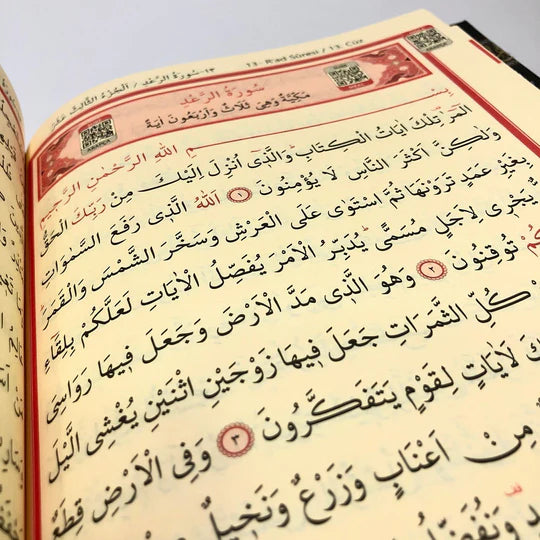 ١٣-سُورَةُ الرَّعْدِ / اَلْجُزْءُ الثَّالِثَ عَشَرَ
13- Ra'd Sûresi / 13. Cüz
سُورَةُ الرَّعْدِ
مَكِّيَّةٌ وَهِيَ ثَلَاثٌ وَاَرْبَعُونَ اٰيَةً
بِسْمِ اللّٰهِ الرَّحْمٰنِ الرَّحِيمِ
الٓمٓرٰ تِلْكَ اٰيَاتُ الْكِتَابِ وَالَّذٖٓي اُنْزِلَ اِلَيْكَ مِنْ رَبِّكَ الْحَقُّ
وَلٰكِنَّ اَكْثَرَ النَّاسِ لَا يُؤْمِنُونَ ﴿١﴾ اَللّٰهُ الَّذٖي رَفَعَ السَّمٰوَاتِ
بِغَيْرِ عَمَدٍ تَرَوْنَهَا ثُمَّ اسْتَوٰى عَلَى الْعَرْشِ وَسَخَّرَ الشَّمْسَ وَالْقَمَرَ
يَجْرٖي لِاَجَلٍ مُسَمًّى يُدَبِّرُ الْاَمْرَ يُفَصِّلُ الْاٰيَاتِ لَعَلَّكُمْ بِلِقَٓاءِ
تُوقِنُونَ ﴿٢﴾ وَهُوَ الَّذٖي مَدَّ الْاَرْضَ وَجَعَلَ فٖيهَا رَوَاسِيَ
كُلِّ الثَّمَرَاتِ جَعَلَ فٖيهَا زَوْجَيْنِ اثْنَيْنِ يُغْشِي الَّيْلَ
لَاٰيَاتٍ لِقَوْمٍ يَتَفَكَّرُونَ ﴿٣﴾ وَفِي الْاَرْضِ قِطَعٌ
مِنْ اَعْنَابٍ وَزَرْعٌ وَنَخٖيلٌ
وَنُفَضِّلُ